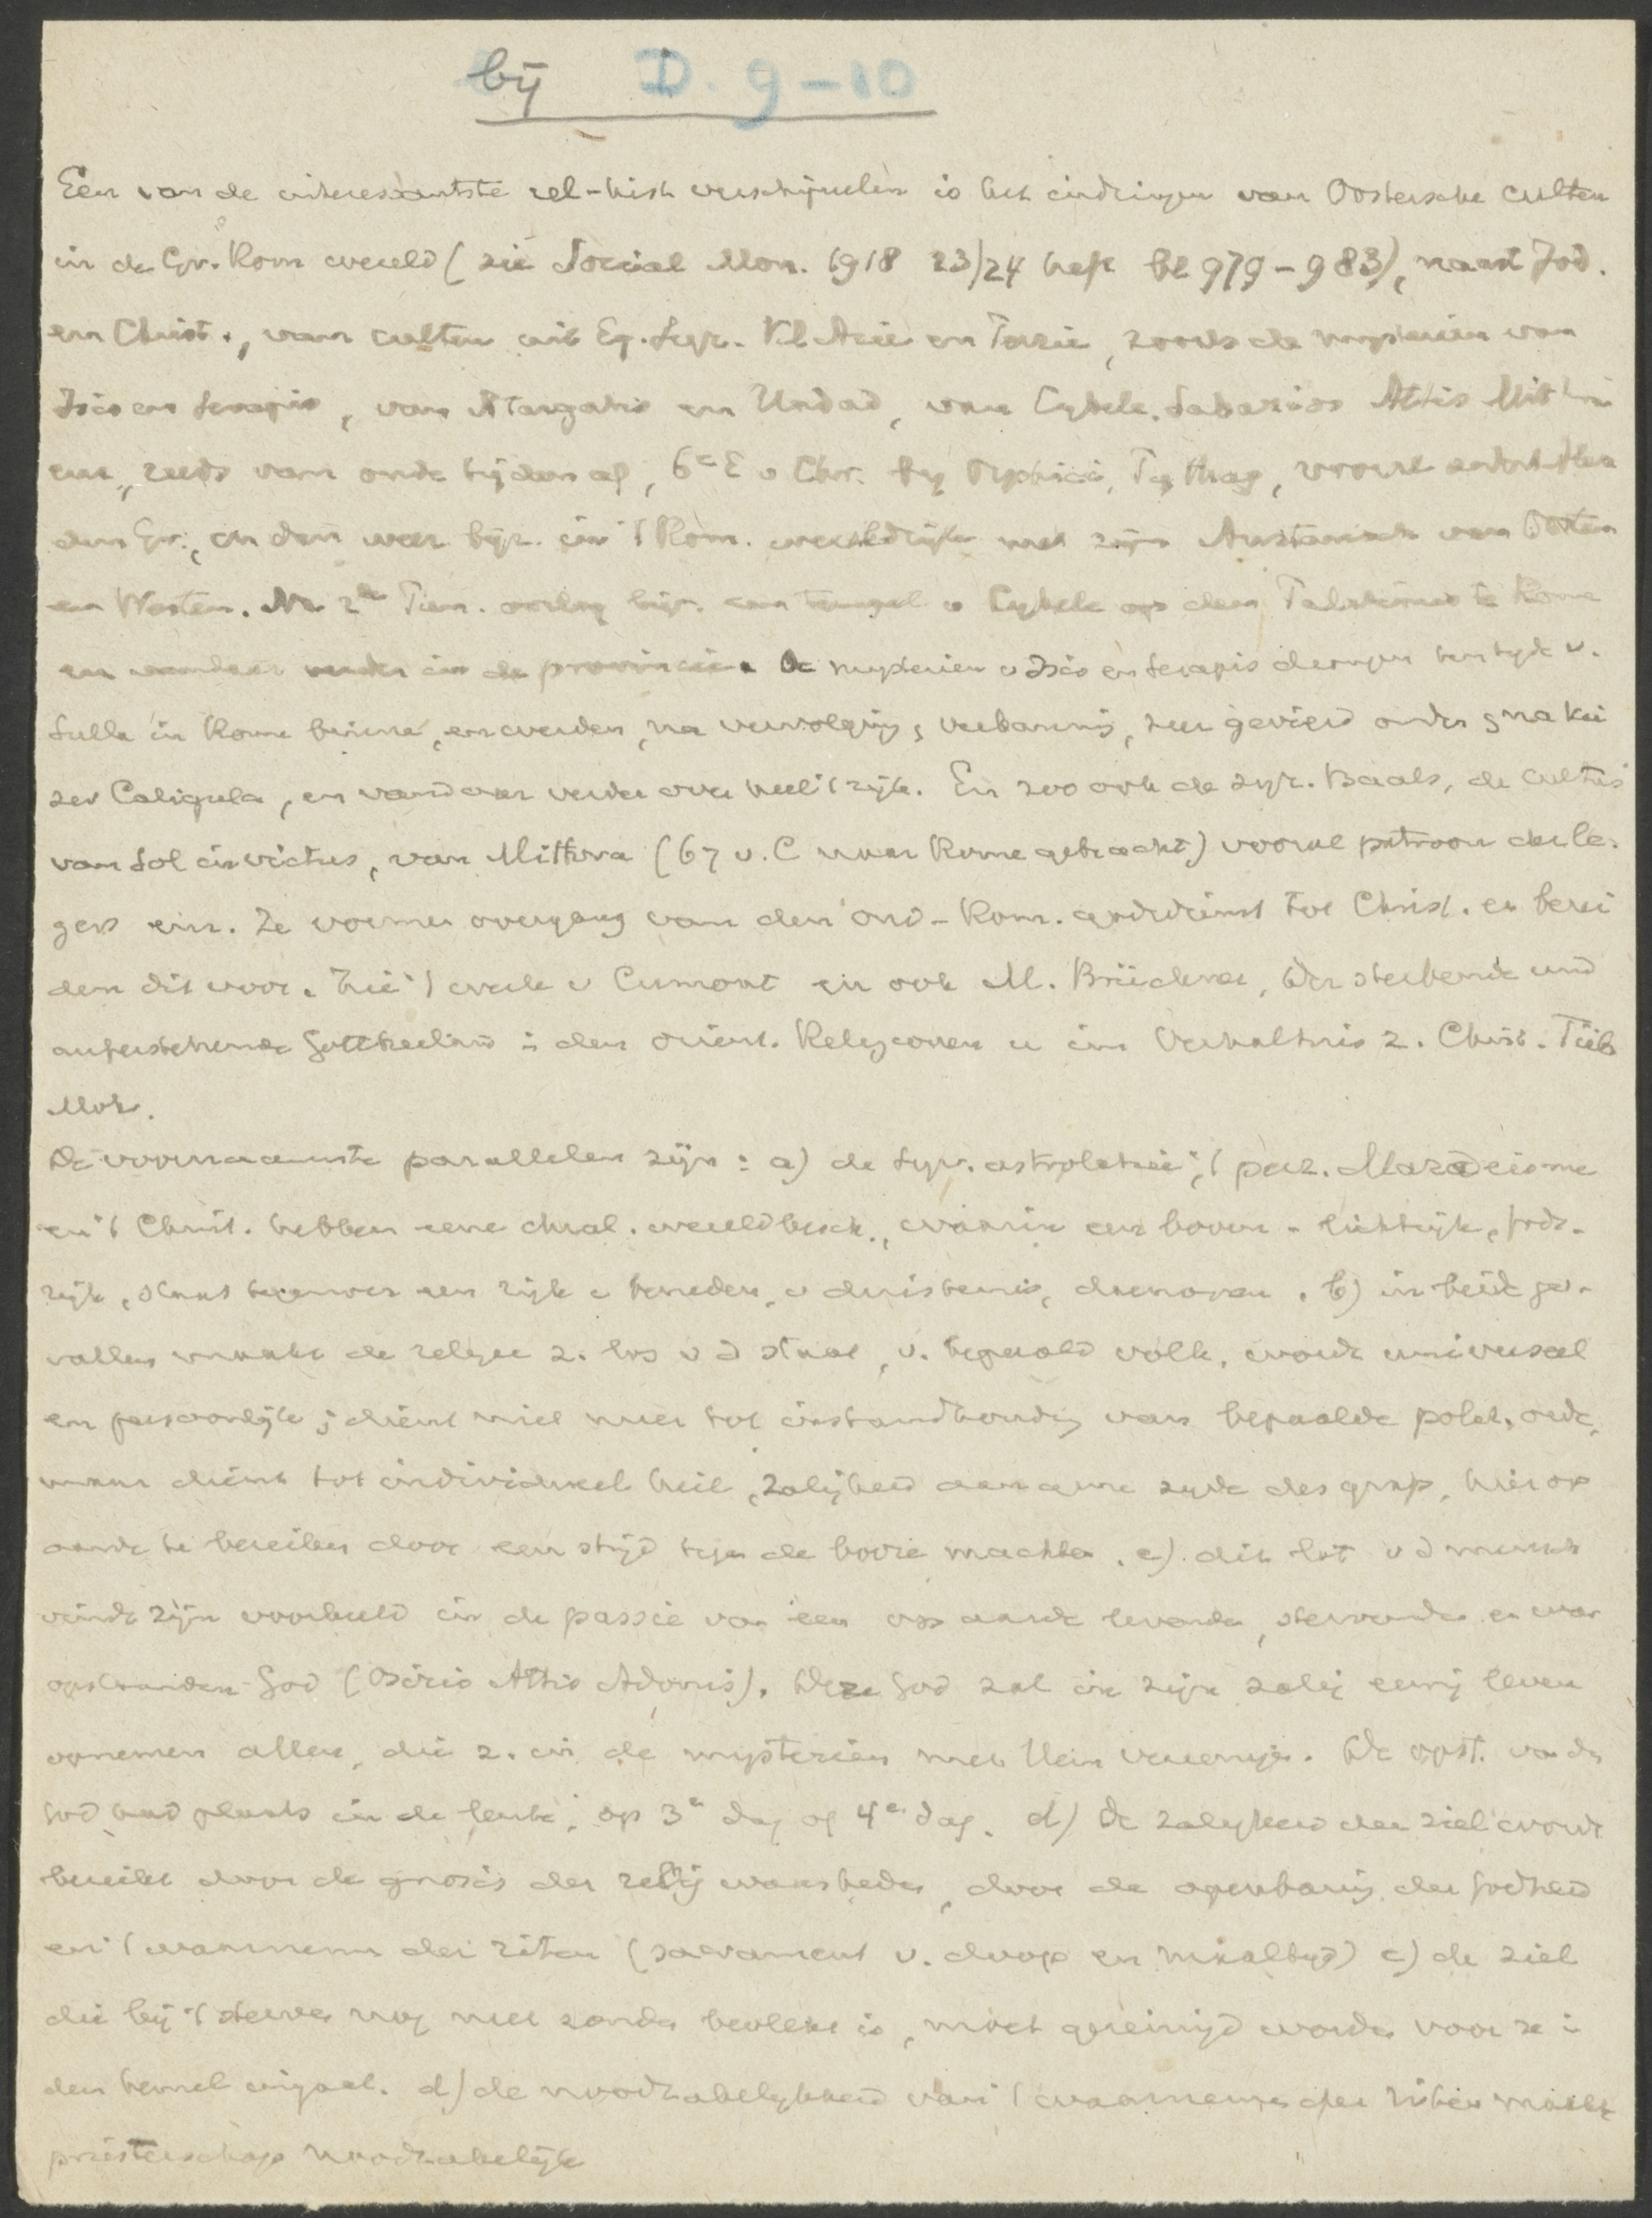 bij D. 9-10
Een van de interessantste rel-hist verschijnselen is het indringen van Oostersche culten
in de Gr. Rom wereld (zie Social Mon. 1918 23/24 heft bl 979-983), naast Jod.
en Christ., van culten uit Eg. Syr. Kl Azie en Perzie, zooals de mysterien van
Isis en Serapis, van Atargatis en Hadad, van Cybele, Sabazios Attis Mithra
enz, reeds van oude tijden af, 6e E v Chr. bij Orphici, Pythag, vooral sedert Alexa
den Gr., en dan weer bijz. in 't Rom. wereldrijk met zijn Austausch van Oosten
en Westen. Na 2de Pun. oorlog bijv. een tempel v Cybele op den Palatinus te Rome
en vandaar verder in de provincien. De mysterien v Isis en Serapis drongen ten tijde v.
Sulla in Rome binnen, en werden, na vervolging, verbanning, zeer gevierd onder s na kei
zer Caligula, en vandaar verder over heel 't rijk. En zoo ook de syr. Baals, de cultus
van Sol invictus, van Mithra (67 v. C naar Rome gebracht) vooral patroon der le-
gers enz. Ze vormen overgang van den oud-Rom. godsdienst tot Christ. en berei
den dit voor. Zie 't werk v Cumont en ook M. Brückner, Der sterbende und
auferstehende Gottheiland i den orient. Religionen u ihr Verhaltnis z. Christ. Tüb
Mohr.
De voornaamste parallelen zijn: a) de Syr. astrolatrie, 't perz. Mazdeisme
en 't Christ. hebben eene dual. wereldbesch., waarin een boven- lichtrijk, gods-
rijk, staat tegenover een rijk v beneden, v duisternis, daemonen. b) in beide ge-
vallen maakt de religie z. los v d staat, v. bepaald volk, wordt universeel
en persoonlijk; dient niet meer tot instandhouding van bepaalde polit. orde,
maar dient tot individueel heil, zaligheid aan gene zijde des graf, hier op
aarde te bereiken door een strijd tegen de booze machten. c) dit lot v d mensch
vindt zijn voorbeeld in de passie van een op aarde levenden, stervenden en weer
opstaanden God (Osiris Attis Adonis). Deze God zal in zijn zalig eeuwig leven
opnemen allen, die z. in de mysterien met Hem vereenigen. De opst. van den
God had plaats in de lente, op 3e dag of 4e dag. d) De zaligheid der ziel wordt
bereikt door de gnosis der relig waarheden, door de openbaring der Godheid
en 't waarnemen der riten (sacrament v. doop en maaltijd) c) de ziel
die bij 't sterven nog met zonden bevlekt is, moet gereinigd worden voor ze i
den hemel ingaat. d) de noodzakelijkheid van 't waarnemen der riten maakt
priesterschap noodzakelijk